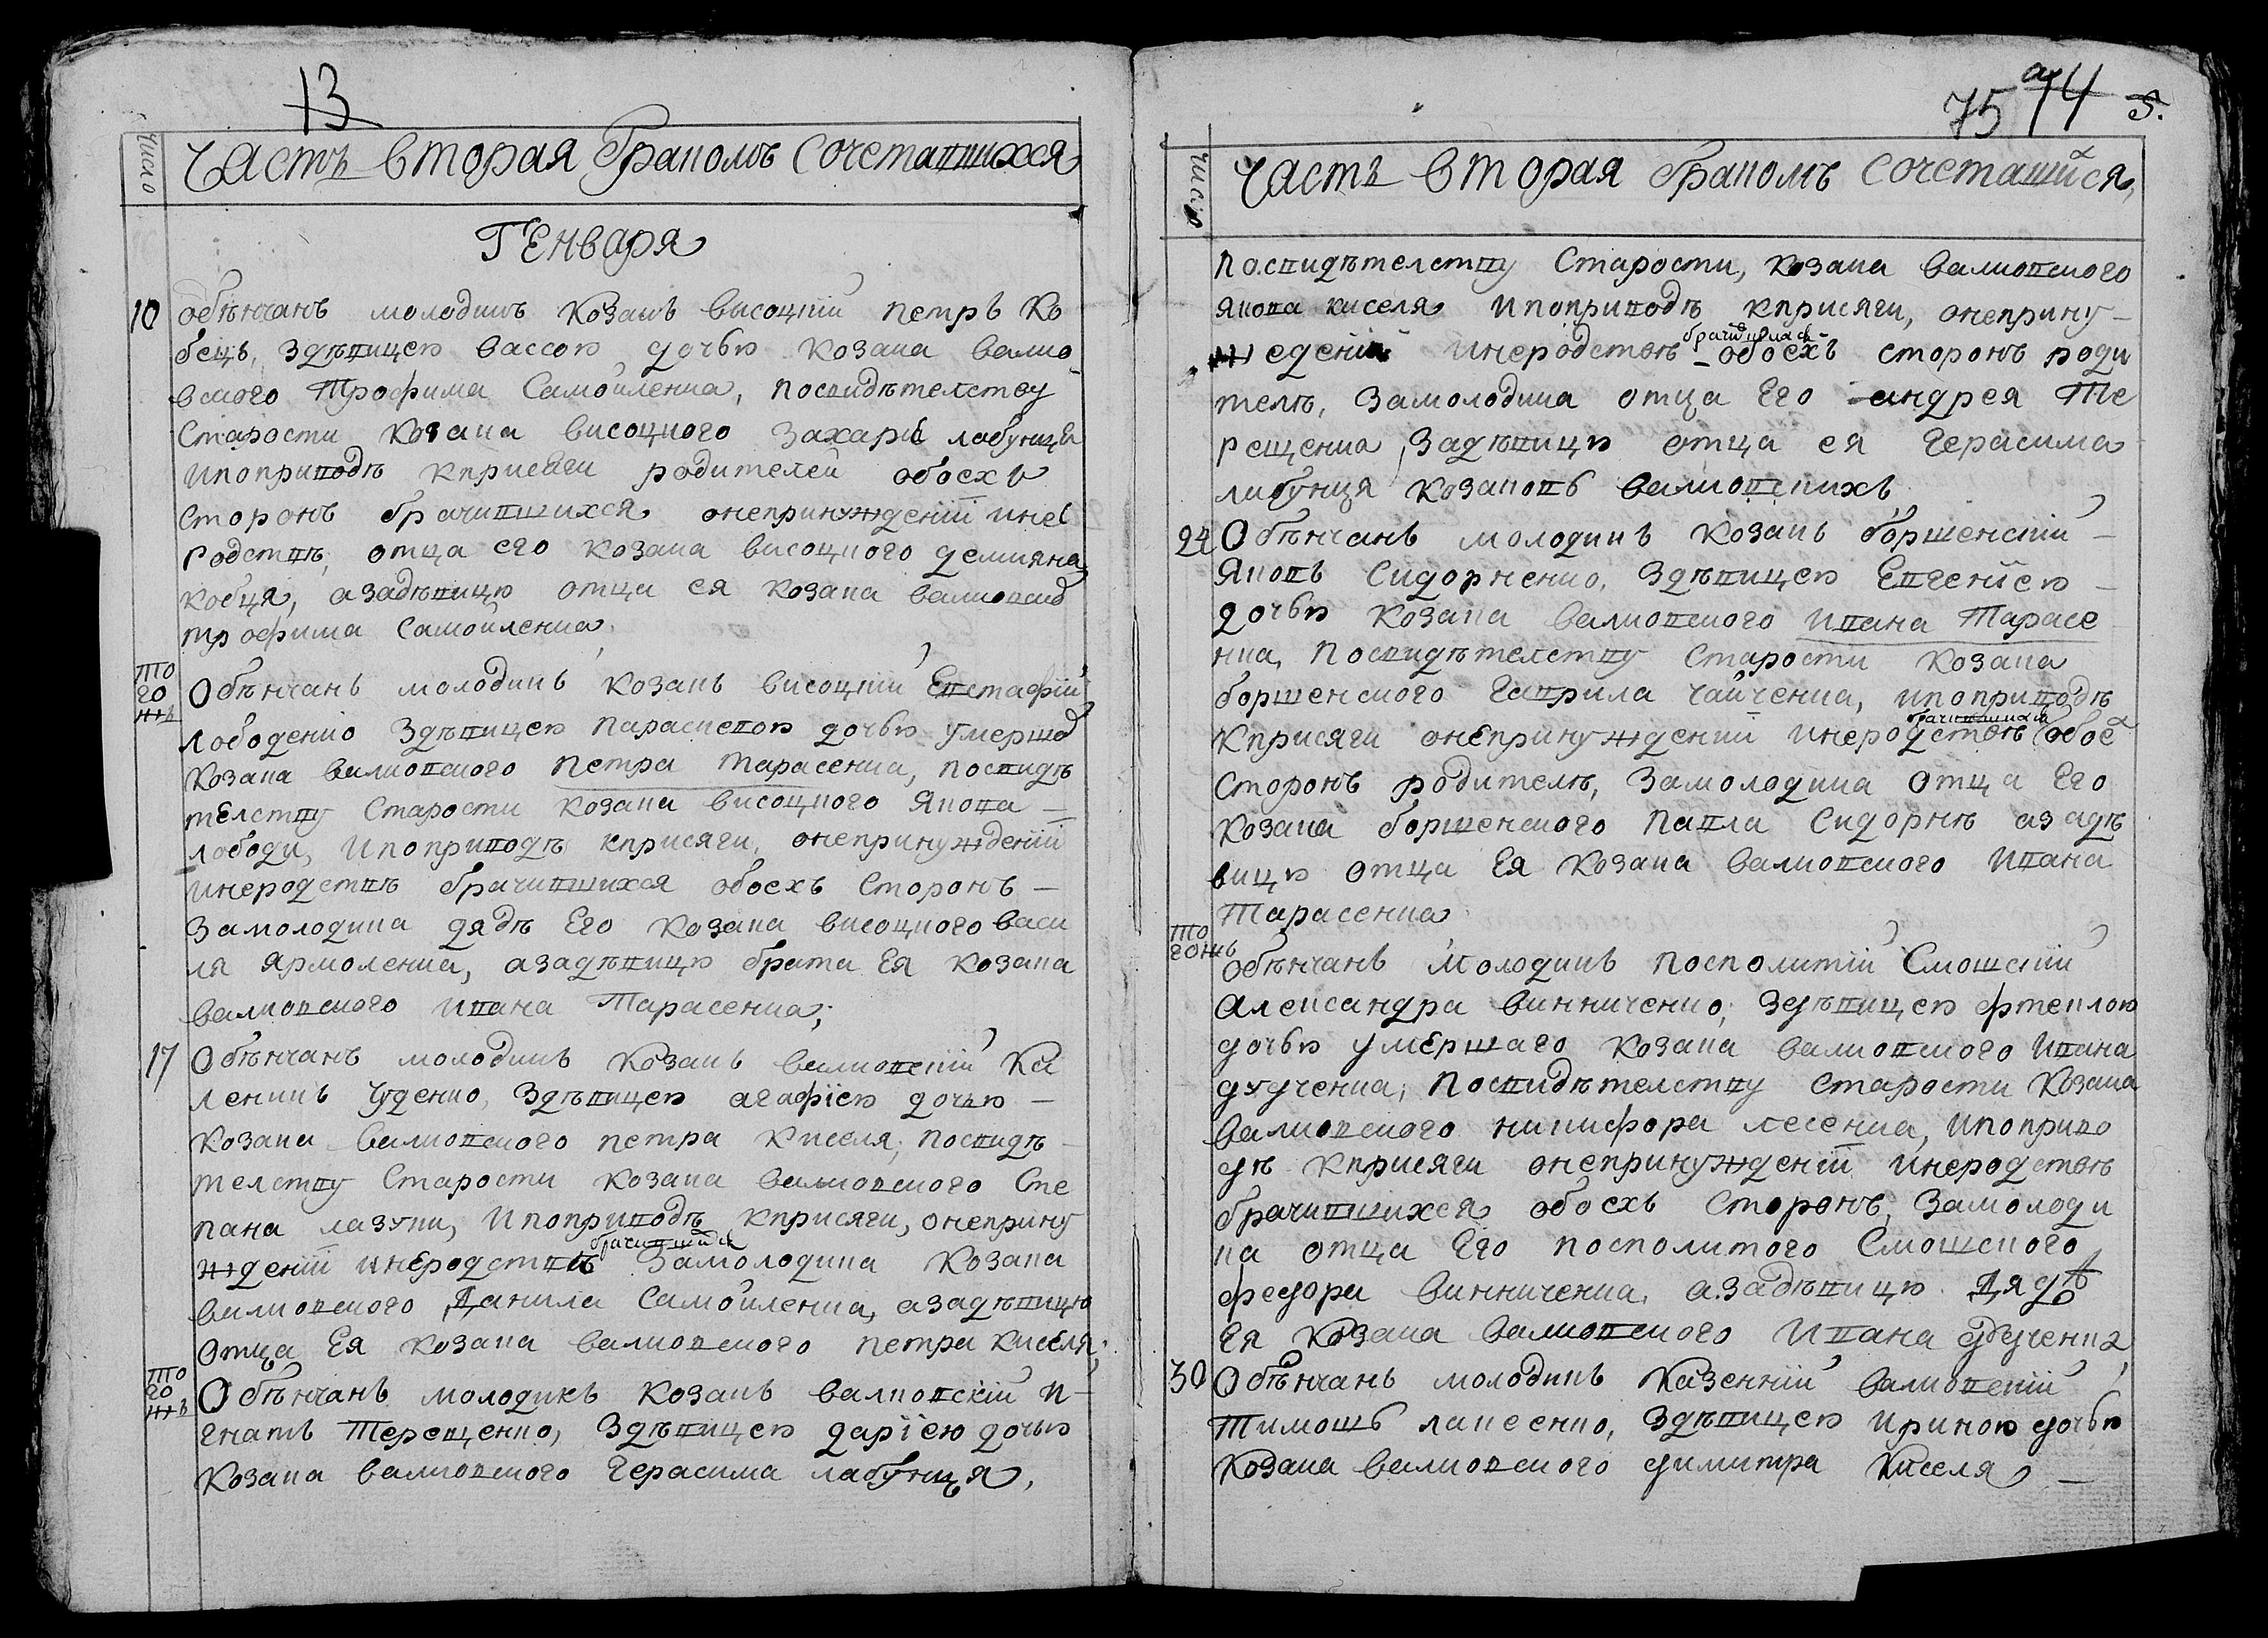 13
Число
Часть Вторая Браком Сочетавшихся
Генваря
10 Обвѣнчанъ молодикъ козакъ висоцкій Петръ Ко
бецъ, здѣвицею Вассою дочью козака валко
вского Трофима Самойленка, посвидѣтелству
старости козака висоцкого Захарія лабунця
ипоприводѣ кприсяги родителей обоехъ
сторонъ брачившихся онепринужденіи ине
родствѣ, отца его козака висоцкого Демияна
кобця, азадѣвицю отца ея козака валковско
трофима самойленка
то
го
жъ
Обвѣнчанъ молодикъ козакъ висоцкій Евстафій
лободенко здѣвицею Параскевою дочью умершо
козака валковского Петра Тарасенка, посвидѣ
телству старости козака висоцкого Якова
лободи, ипоприводѣ кприсяги, онепринужденіи
инеродствѣ брачившихся обоехъ сторонъ
замолодика дядѣ его козака висоцкого Васи
ля Ярмоленка, азадѣвицю брата Ея козака
валковского Ивана Тарасенка;
17 Обвѣнчанъ молодикъ козакъ валковскій Ка
леникъ Чуденко, здѣвицею агафіею дочью
козака валковского петра Киселя, посвидѣ
телству старости козака валковского Сте
пана лазуки, ипоприводѣ кприсяги, онеприну
жденіи инеродствѣ брачившихся замолодика козака
валковского Данила Самойленка, азадѣвицю
отца Ея козака валковского петра киселя;
то
го
жъ
Обвѣнчанъ молодикъ козакъ валковскій И
гнатъ Терещенко, здѣвицею даріею дочью
козака валковского Герасима лабунця,
75 74
Число
Часть Вторая Браком Сочетавшихся
посвидѣтелству старости, козака валковского
якова киселя ипоприводѣ кприсяги, онеприну
жденіи инеродствѣ брачившихся обоехъ сторонъ роди
телѣ, замолодика отца Его андрея Те
рещенка, задѣвицю отца ея Герасима
лабунця козаковъ валковскихъ
24 Обвѣнчанъ молодикъ козакъ боршенскій
Яковъ Сидорненко, здѣвицею Евгеніею
дочью козака валковского Ивана Тарасе
нка, посвидѣтелству старости козака
боршенского Гаврила чайченка, ипоприводѣ
кприсяги онепринужденіи инеродствѣ брачившихся обоех
сторонъ родителѣ, замолодика отца Его
козака боршенского Павла Сидорнѣ азадѣ
вицю отца Ея козака валковского Ивана
Тарасенка
то
гожъ
Обвѣнчанъ молодикъ посполитій Смошскій
Александра винниченко, здѣвицею Фтеклою
дочью умершаго козака валковского Ивана
дудченка, посвидѣтелству старости козака
валковского никифора лесенка, ипоприво
дѣ кприсяги онепринужденіи инеродствѣ
брачившихся обоехъ сторонъ, замолоди
ка отца Его посполитого Смошского
федора винниченка, азадѣвицю дядѣ
Ея козака валковского Ивана дудченка
30 Обвѣнчанъ молодикъ Казенній валковскій
Тимошъ лапеенко, здѣвицею Ириною дочью
козака валковского димитра Киселя